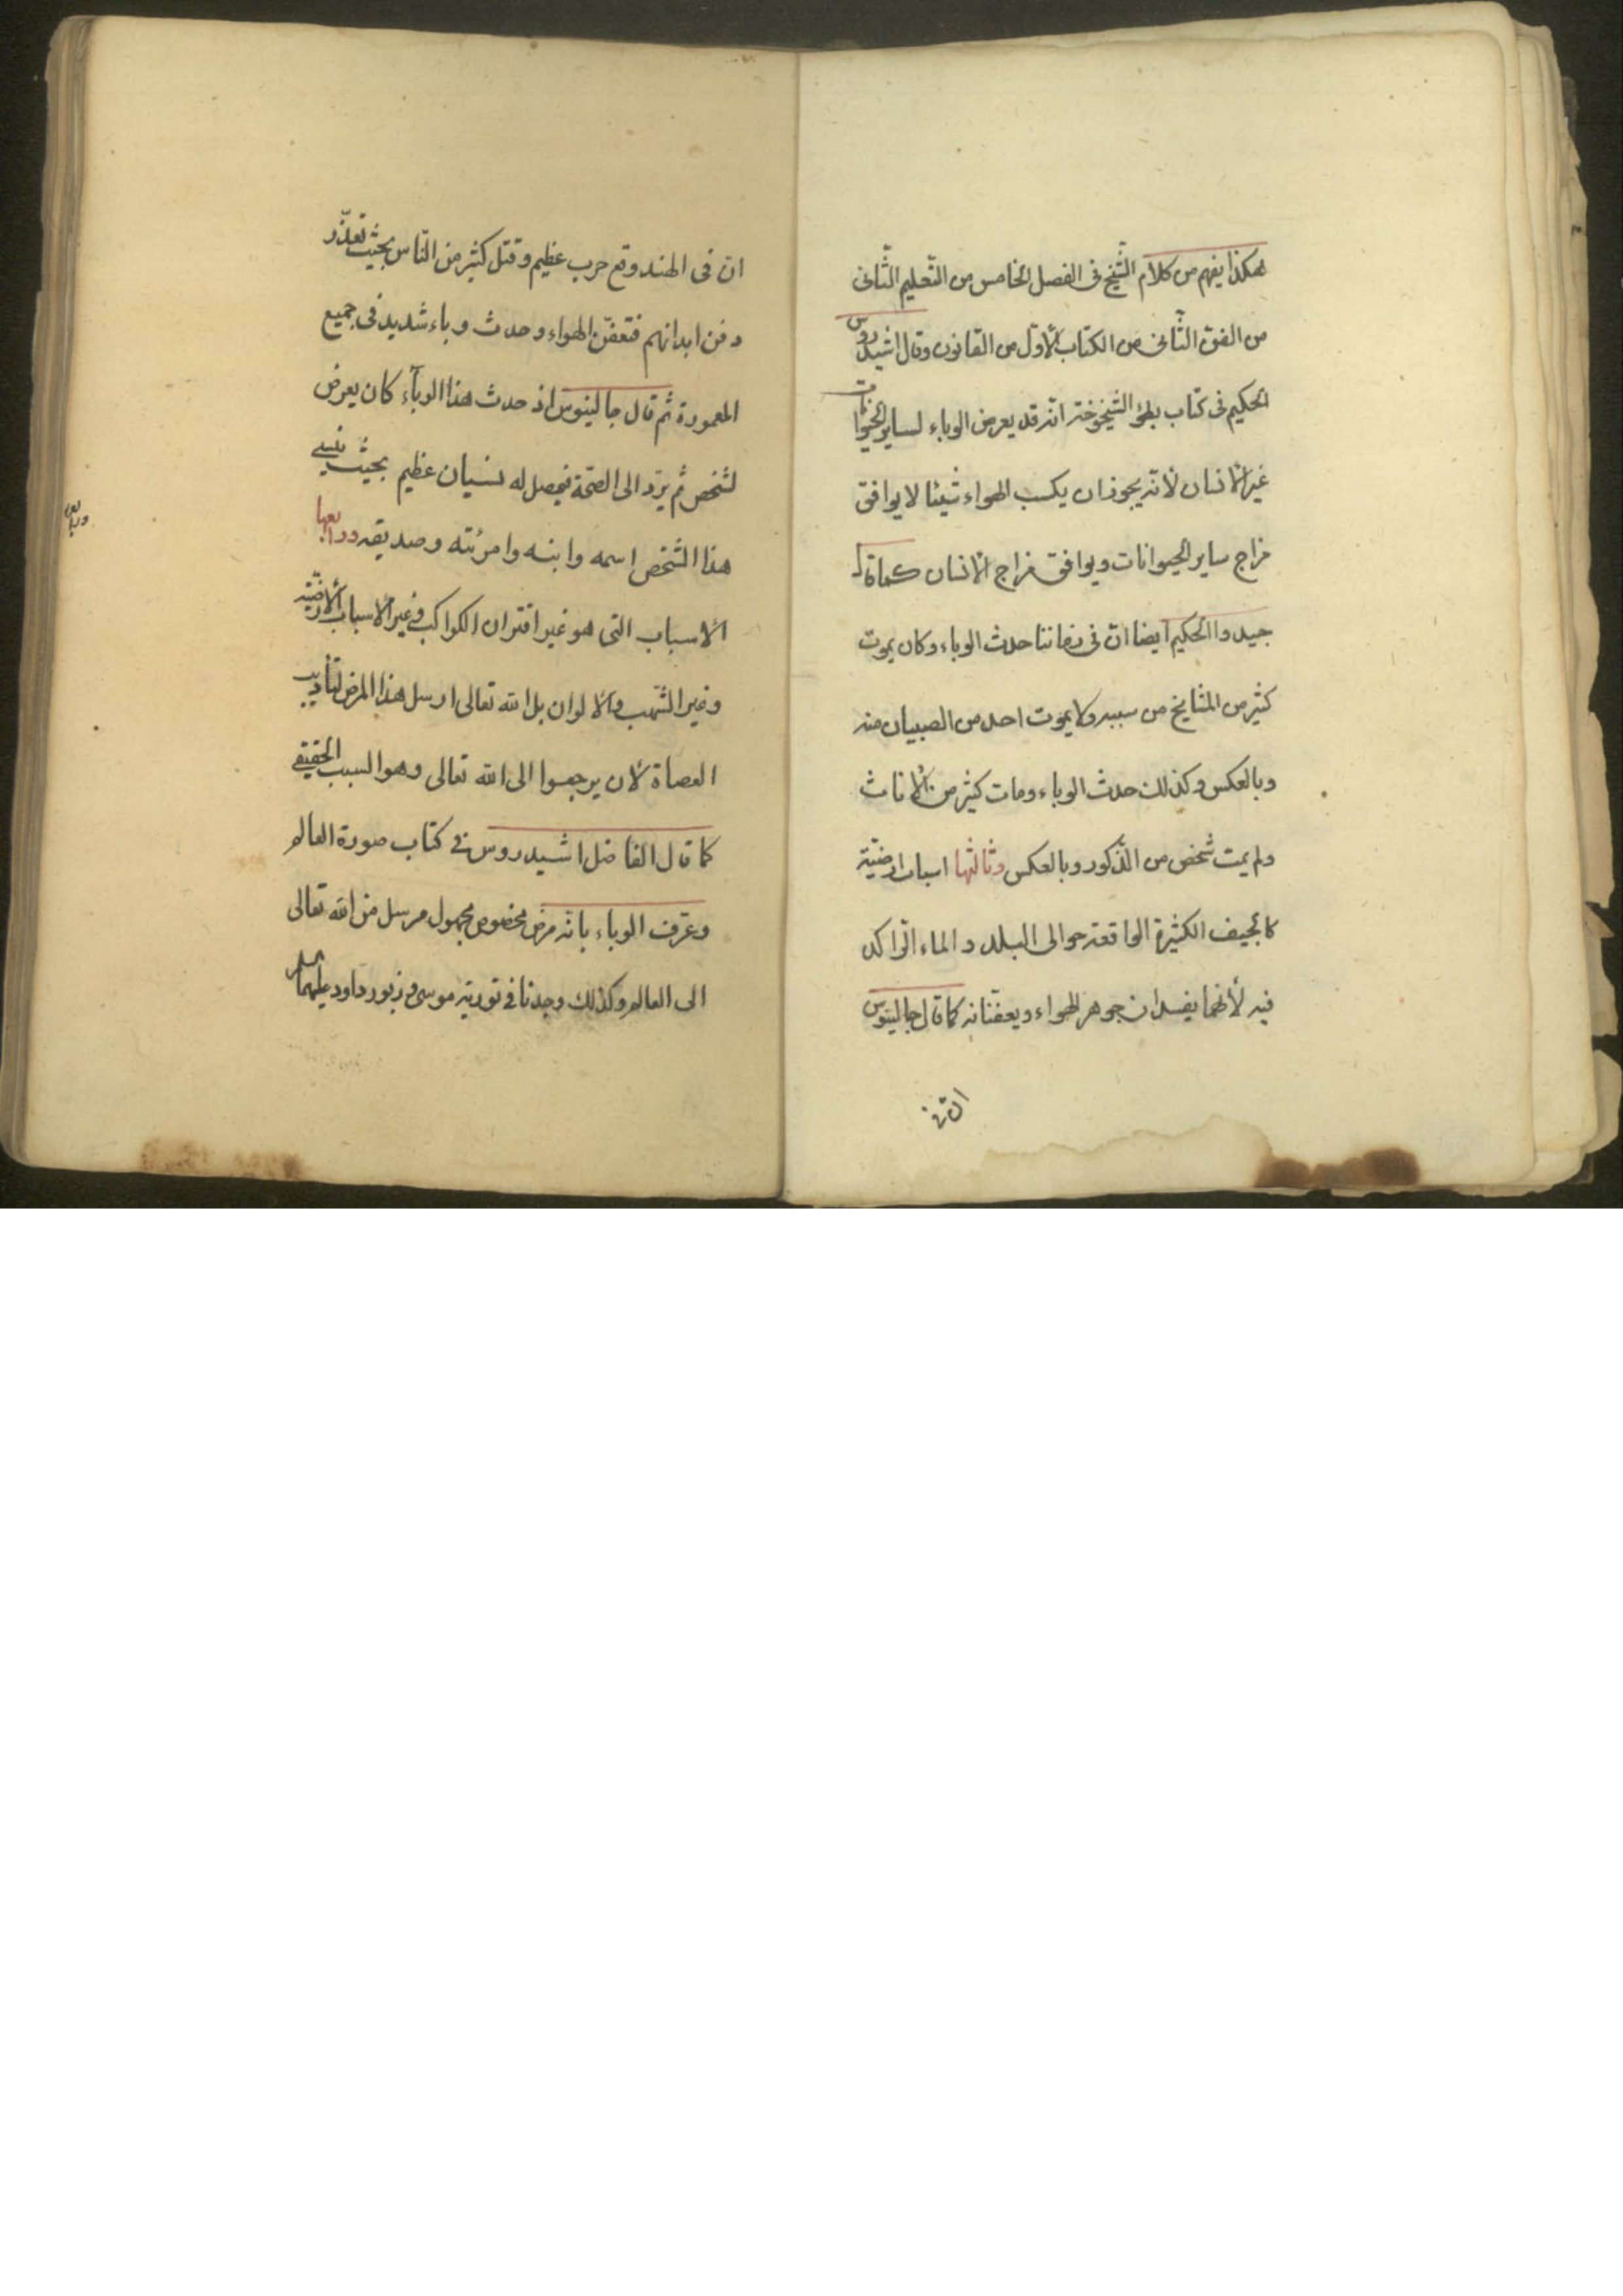 هكذا يفهم من كلام الشّيخ فى الفصل الخامس من التّعليم الثّانى
من الفنّ الثّانى من الكتاب الأوّل من القانون وقال اشيدروس
الحكيم فى كتاب بطؤ الشّيخوخة انّه قد يعرض الوباء لساير الحيوانات
غير الانسان لأنّه يجوز ان يكسب الهواء شيئا لا يوافق
مزاج ساير الحيوانات ويوافق مزاج الانسان كما قال
جيد والحكيم ايضا انّ فى زماننا حدث الوباء وكان يموت
كثير من المشايخ من سببه ولا يموت احد من الصبيان منه
وبالعكس وكذلك حدث الوباء ومات كثير من الاناث
ولم يمت شخص من الذّكور وبالعكس وثالثها اسباب ارضيّة
كالجيف الكثيرة الواقعة حوالى البلد والماء الرّاكد
فيه لأنّهما يفسدان جوهر الهواء ويعفّنانه كما قال جالينوس
انّ فى
ان فى الهند وقع حرب عظيم وقتل كثير من النّاس بحيث تعذّر
دفن ابدانهم فتعفّن الهواء وحدث وباء شديد فى جميع
المعمورة ثم قال جالينوس اذ حدث هذا الوبآء كان يعرض
لشخص ثم يردّ الى الصّحّة فيحصل له نسيان عظيم بحيث نسى
هذا الشّخص اسمه وابنه وامرئته وصديقه ورابعها
الاسباب التى هو غير اقتران الكواكب وغير الاسباب الأرضيّة
وغير الشّهب والالوان بل الله تعالى ارسل هذا المرض لتأديب
العصاة لأن يرجعوا الى الله تعالى وهو السبب الحقيقى
كما قال الفاضل اشيدروس فى كتاب صورة العالم
وعرّف الوباء بانّه مرض مخصوص مجهول مرسل من الله تعالى
الى العالم وكذلك وجدنا فى تورية موسى وزبور داود عليهما السلام